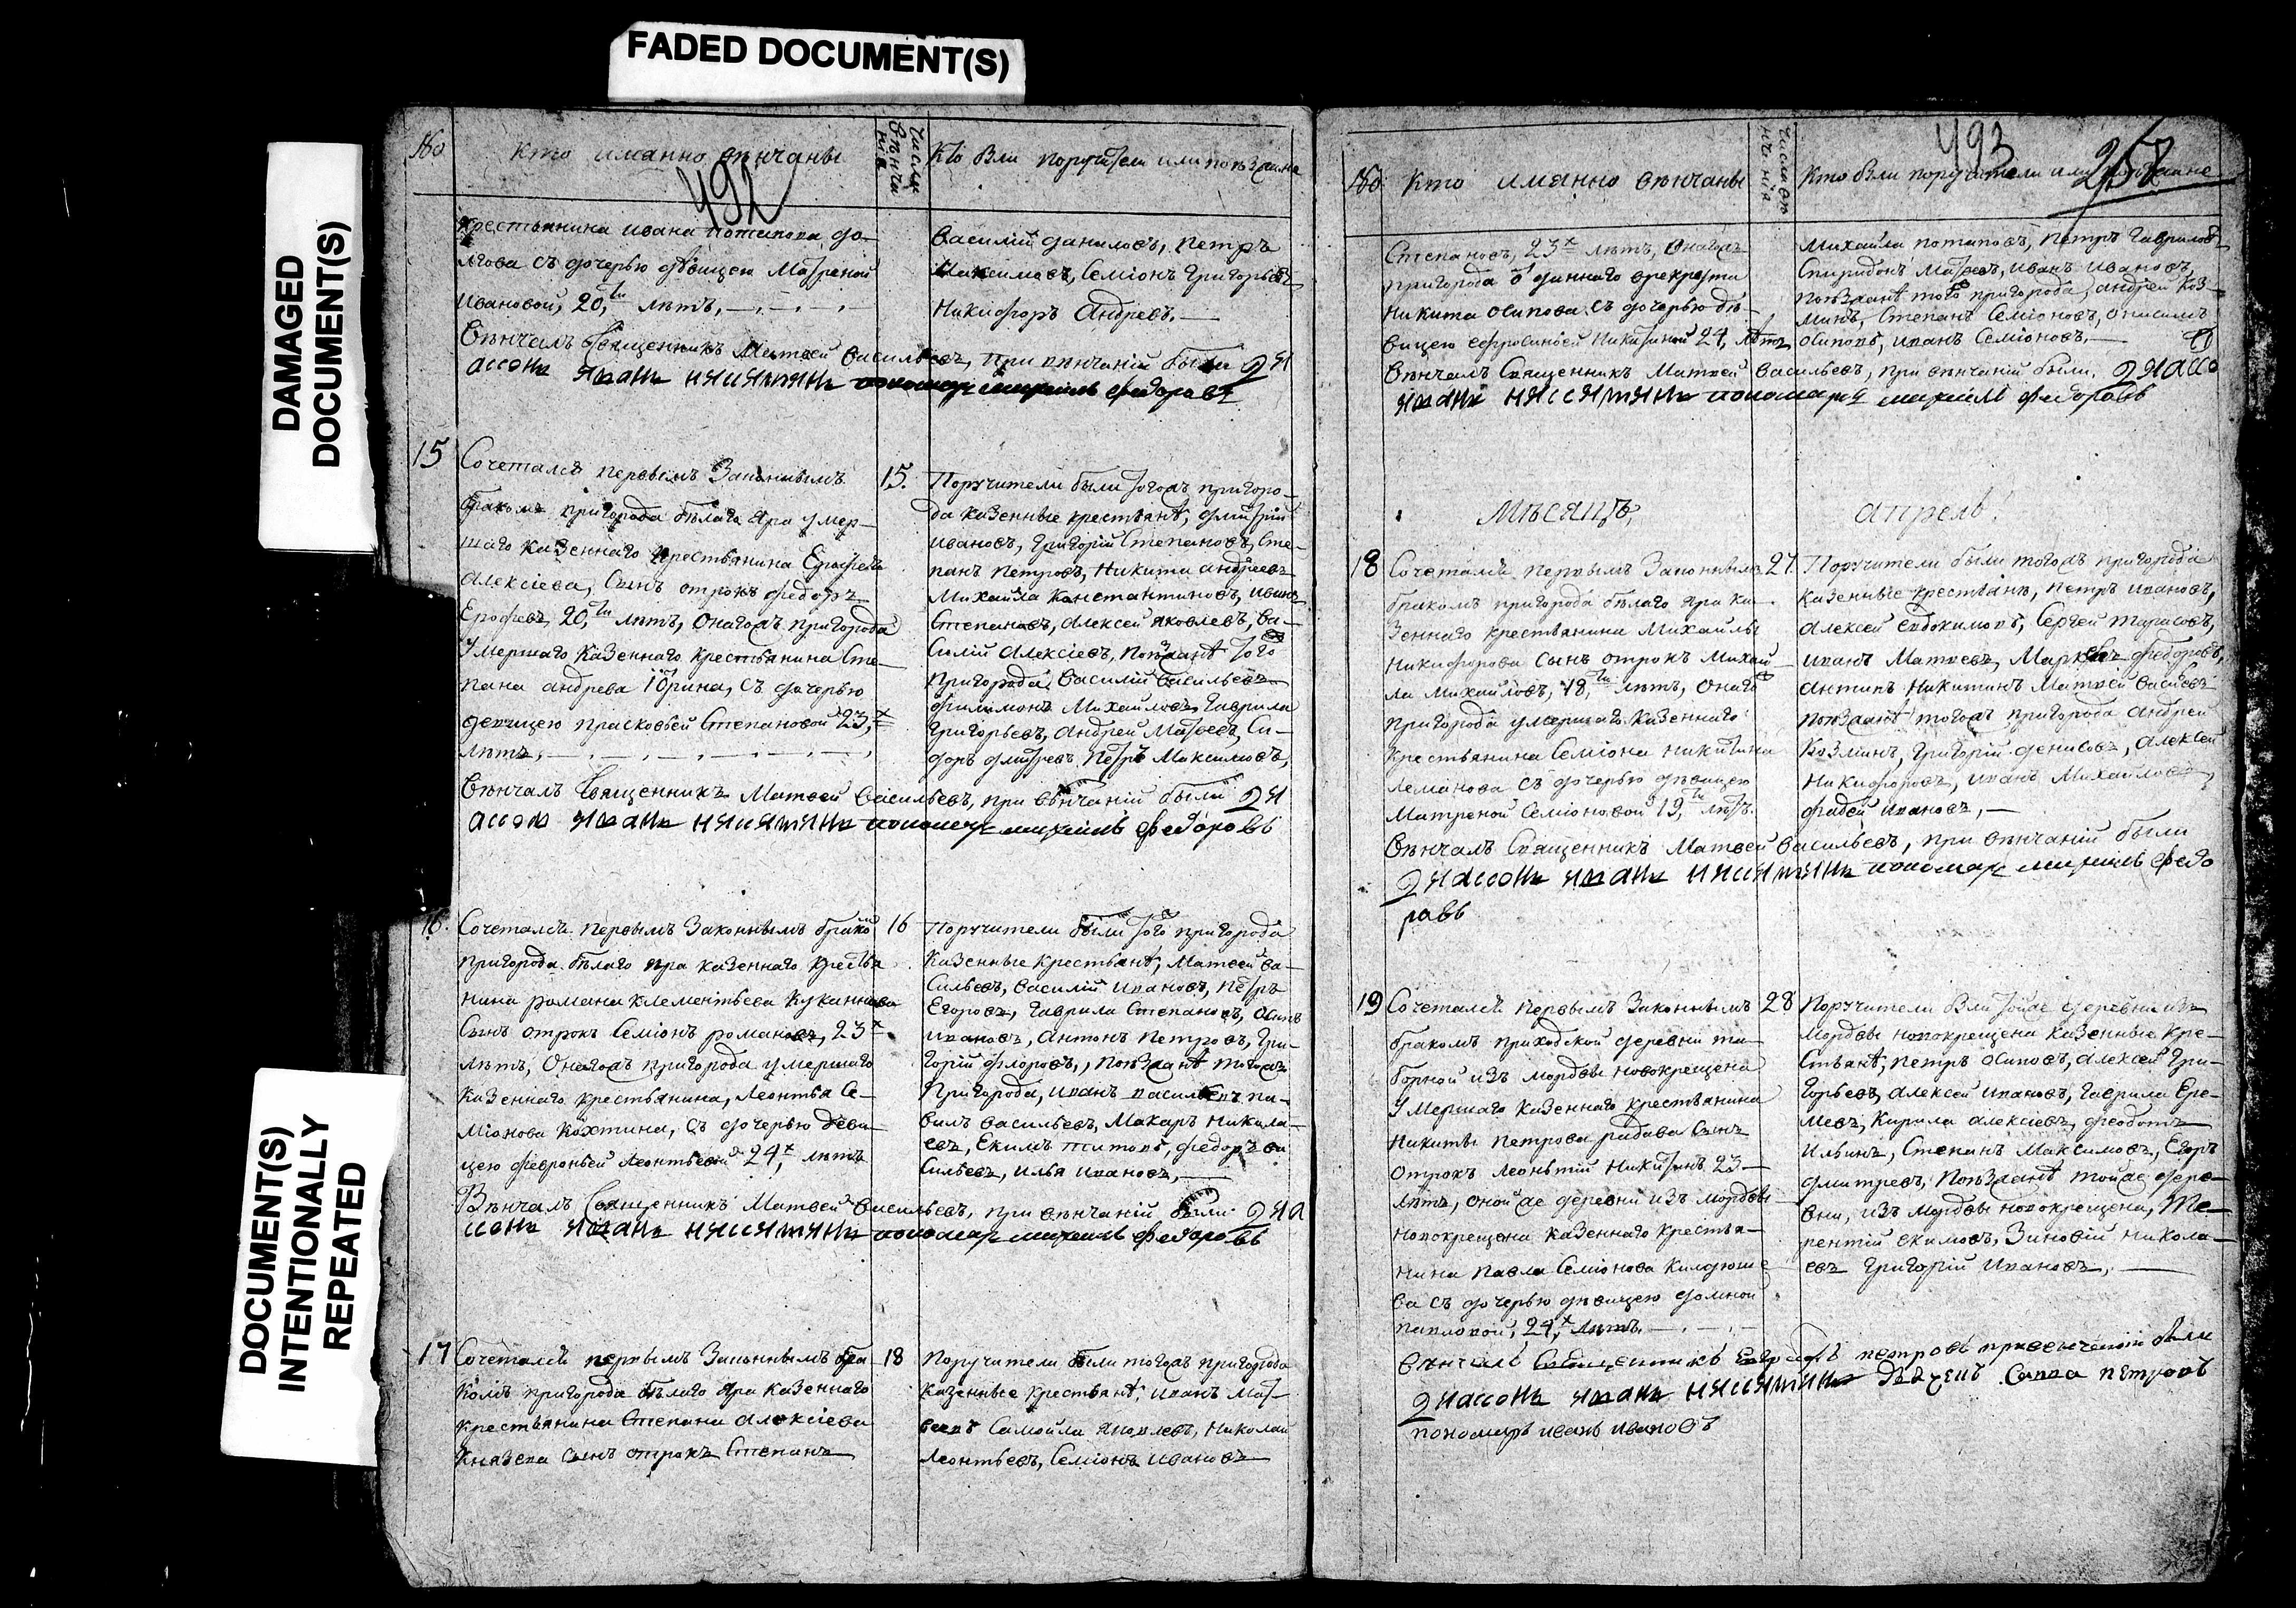 FADED DOCUMENT(S)
DAMAGED
DOCUMENT(S)
DOCUMENT(S)
INTENTIONALLY
REPEATED
№
кто имянно вѣнчаны
492
Числа
вѣнча
нія
Кто были поручители или поѣзжане
крестьянина ивана потапова до-
лгова съ дочерью дѣвицею Матреной
Ивановой, 20,ти лѣтъ,
Вѣнчалъ Священникъ Матвей Васильевъ, при вѣнчаніи были дья
Василій даниловъ, Петръ
Максимовъ, Семіонъ Григорьевъ
Никифоръ Андревъ.
пономарь михаилъ федоровъ
15
Сочетался первымъ Законнымъ
бракомъ пригорода бѣлаго Яра умер-
шаго казеннаго крестьянина Ерофея
Алексіева, Сынъ отрокъ федоръ
Ерофевъ, 20,ти лѣтъ, Онагожъ пригорода
Умершаго Казеннаго Крестьянина Сте-
пана андрева Юрина, съ дочерью
девицею прасковьей Степановой 23,х
лѣтъ,
15.
Поручители были тогожъ пригоро-
да казенные крестьянѣ, дмитрій
ивановъ, Григорій Степановъ, Сте-
панъ Петровъ, Никита андревъ
Михайла Константиновъ, иванъ
Степановъ, Алексей яковлевъ, Ва-
силій Алексіевъ, Поѣзжанѣ того
Пригорода Василій Васильевъ
филимонъ Михайловъ, Гаврила
Григорьевъ, андрей Матвевъ, Си-
доръ дмитревъ Петръ Максимовъ,
Вѣнчалъ Священникъ Матвей Васильевъ, при вѣнчаніи были дья
пономарь михаилъ федоровъ
16.
Сочетался первымъ Законнымъ бракомъ
пригорода бѣлаго яра казеннаго крестья
нина романа клементьева Куканнова
Сынъ отрокъ Семіонъ романовъ, 23х
лѣтъ, Онагожъ пригорода умершаго
Казеннаго крестьянина, Леонтья Се-
міонова Кохтина, съ дочерью деви-
цею февроньей Леонтьевой 24х, лѣтъ
16
Поручители были того пригорода
Казенные крестьянѣ, Матвей Ва-
сильевъ, Василій ивановъ, Петръ
Егоровъ, Гаврила Степановъ, Осипъ
ивановъ, Антонъ Петровъ, Гри-
горій флоровъ, Поѣзжанѣ тогожъ
Пригорода, иванъ васильевъ, па-
вилъ Васильевъ, Макаръ Никола-
евъ, Екимъ титовъ, федоръ ва
сильевъ, илья ивановъ,
Вѣнчалъ Священникъ Матвей Васильевъ, при вѣнчаніи были дья
пономарь михаилъ федоровъ
17
Сочетался первымъ Законнымъ бра-
комъ пригорода бѣлаго яра казеннаго
крестьянина Степана Алексіева
Князева Сынъ отрокъ Степанъ
18
Поручители были тогожъ пригорода
казенные крестьянѣ, иванъ Мат-
веевъ Самойла Яковлевъ, Николай
Леонтьевъ, Семіонъ ивановъ
№
Кто имянно вѣнчаны
Числа вѣ
нчанія
493
257
Кто были поручители или поѣзжане
Степановъ, 23х лѣтъ, Онагожъ
пригорода
Никита осипова съ дочерью дѣ-
вицею ефросиньей Никитиной 24, лѣтъ
Михайла потаповъ, петръ Гавриловъ
Спиридонъ Матвевъ, иванъ ивановъ,
поѣзжанѣ того пригорода, андрей Коз-
минъ, Степанъ Семіоновъ, онисимъ
осиповъ, иванъ Семіоновъ.
Вѣнчалъ Священникъ Матвей Васильевъ, при вѣнчаніи были,
пономарь михаилъ федоровъ
Мѣсяцъ,
апрель.
18
Сочетался первымъ Законнымъ
бракомъ пригорода бѣлаго яра ка-
зеннаго крестьянина Михайлы
Никифорова Сынъ отрокъ Михай-
ла Михайловъ, 18,ти лѣтъ, онаго
пригорода умершаго казеннаго
крестьянина Семіона Никитина
Леманова съ дочерью дѣвицею
Матреной Семіоновой 19,ти лѣтъ.
27
Поручители были тогожъ пригорода
казенные крестьянѣ, Петръ ивановъ,
Алексей Евдокимовъ, Сергей тарасовъ,
иванъ Матвевъ, Марк федоровъ,
антипъ Никитинъ Матвей Васильевъ
поѣзжанѣ тогожъ пригорода андрей
Козминъ, Григорій денисовъ, Алексей
Никифоровъ, иванъ Михайловъ,
фадей ивановъ,
Вѣнчалъ Священникъ Матвей Васильевъ, при вѣнчаніи были
пономарь михаилъ федо
ровъ
19
Сочетался первымъ Законнымъ
бракомъ приходской деревни та-
борной изъ мордвы новокрещена
Умершаго Казеннаго крестьянина
Никиты Петрова радава Сынъ
отрокъ Леонтій Никитинъ 23
лѣтъ, оной же деревни изъ мордвы
Новокрещена казеннаго крестья-
нина Павла Семіонова Килдюше
ва съ дочерью дѣвицею домной
павловой, 24,х лѣтъ.
28
Поручители были тойже деревни изъ
мордвы новокрещена казенные кре-
стьянѣ, Петръ осиповъ, Алексей Гри-
горьевъ, Алексей ивановъ, Гаврила Ере-
мевъ, Кирила Алексіевъ, федотъ
Ильинъ, Степанъ Максимовъ, Егоръ
дмитревъ, Поѣзжанѣ тойже дере-
вни, изъ мордвы новокрещена, те-
рентій екимовъ, Зиновій никола-
евъ Григорій Ивановъ,
Вѣнчалъ Священникъ петровъ привенчаніи были
Савва петровъ
пономарь иванъ ивановъ